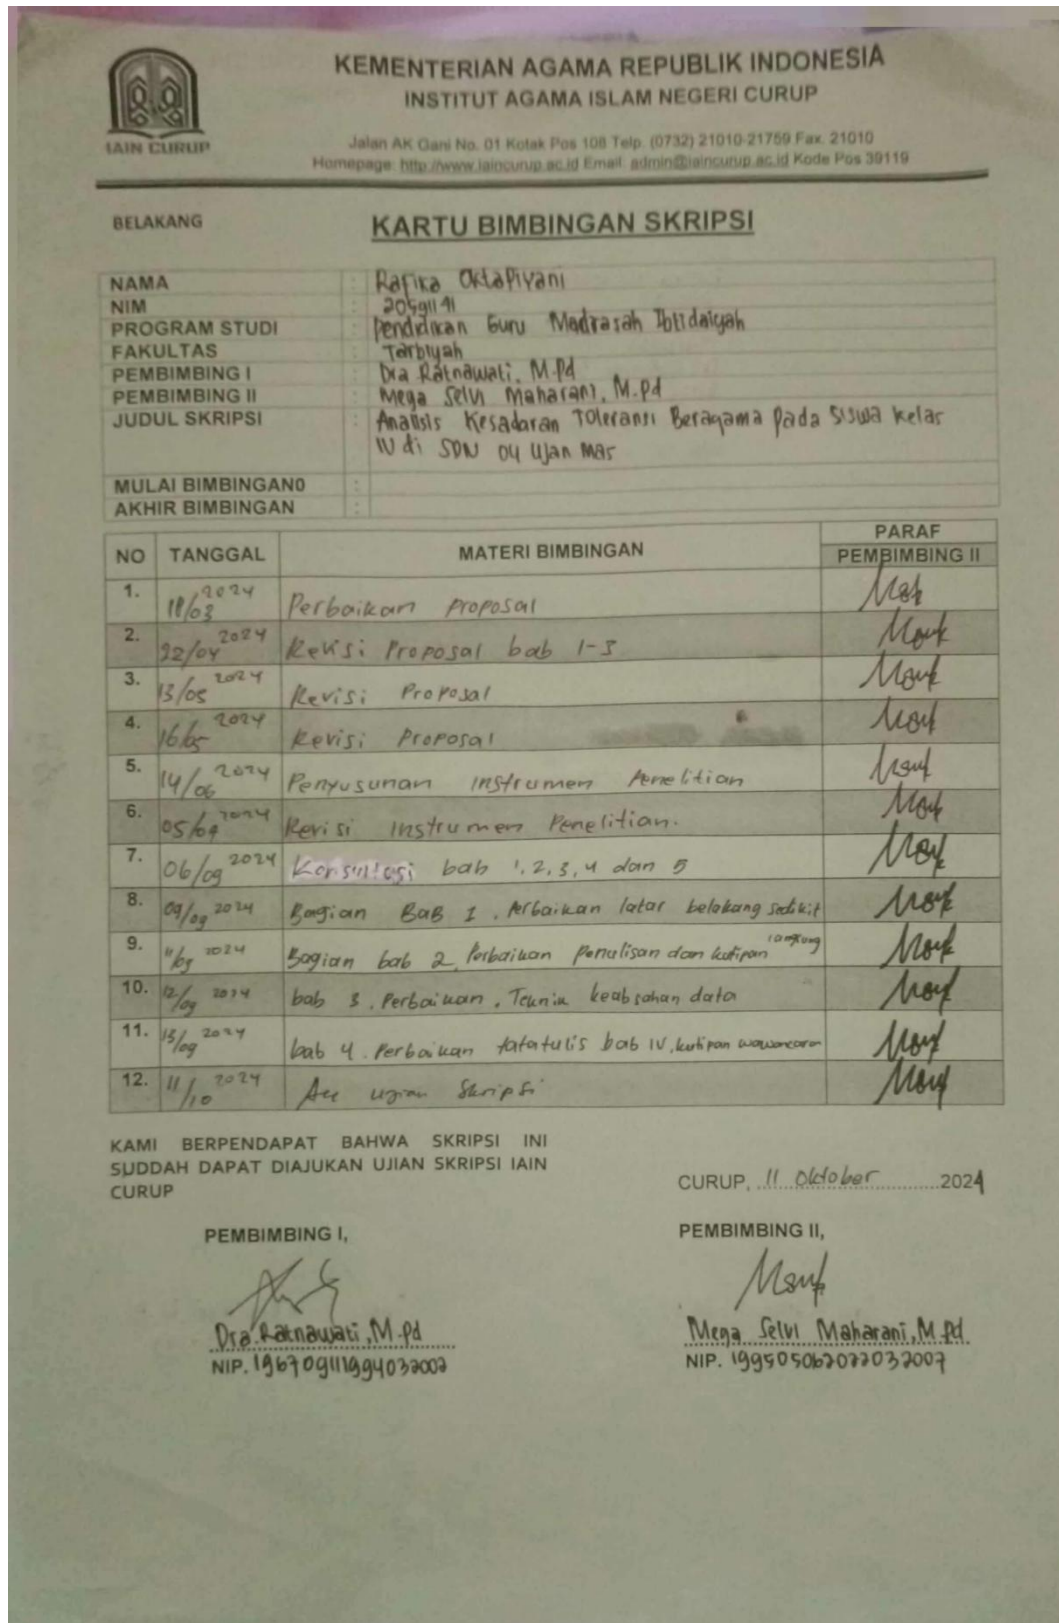 KEMENTERIAN AGAMA REPUBLIK INDONESIA
INSTITUT AGAMA ISLAM NEGERI CURUP
IAIN CURUP
Jalan AK Gani No. 01 Kotak Pos 108 Telp. (0732) 21010-21759 Fax. 21010
Homepage: http://www.iaincurup.ac.id Email: admin@iaincurup.ac.id Kode Pos 39119
BELAKANG
KARTU BIMBINGAN SKRIPSI
NAMA : Rafika Oktapiyani
NIM : 20591141
PROGRAM STUDI : Pendidikan Guru Madrasah Ibtidaiyah
FAKULTAS : Tarbiyah
PEMBIMBING I : Dra Ratnawati, M.Pd
PEMBIMBING II : Mega Selvi Maharani, M.Pd
JUDUL SKRIPSI : Analisis Kesadaran Toleransi Beragama Pada Siswa Kelas
IV di SDN 04 Ujan Mas
MULAI BIMBINGAN0 :
AKHIR BIMBINGAN :
NO TANGGAL MATERI BIMBINGAN PARAF
PEMBIMBING II
1. /03 2024 Perbaikan Proposal
2. 22/04 2024 Revisi Proposal bab 1-3
3. 13/05 2024 Revisi Proposal
4. 16/05 2024 Revisi Proposal
5. 14/06 2024 Penyusunan Instrumen Penelitian
6. 05/09 2024 Revisi Instrumen Penelitian.
7. 06/09 2024 Konsultasi bab 1, 2, 3, 4 dan 5
8. 09/09 2024 Bagian BAB 1. Perbaikan latar belakang sedikit
9. 11/09 2024 Bagian bab 2. Perbaikan Penulisan dan kutipan langsung
10. 12/09 2024 bab 3. Perbaikan. Teknik keabsahan data
11. 13/09 2024 bab 4. Perbaikan tatatulis bab IV, kutipan wawancara
12. 11/10 2024 Acc ujian Skripsi
KAMI BERPENDAPAT BAHWA SKRIPSI INI
SUDDAH DAPAT DIAJUKAN UJIAN SKRIPSI IAIN
CURUP
CURUP, 11 Oktober 2024
PEMBIMBING I,
PEMBIMBING II,
Dra. Ratnawati, M.Pd
NIP. 196709111994032002
Mega Selvi Maharani, M.Pd
NIP. 199505062022032007